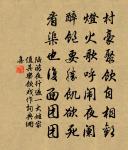 村豪聚飲自相歡
燈火歌呼鬧夜闌
醉飽要勝飢欲死
看渠也復面團團
陸游夜行過一大姓家
值其樂飲戏作詞典網
集